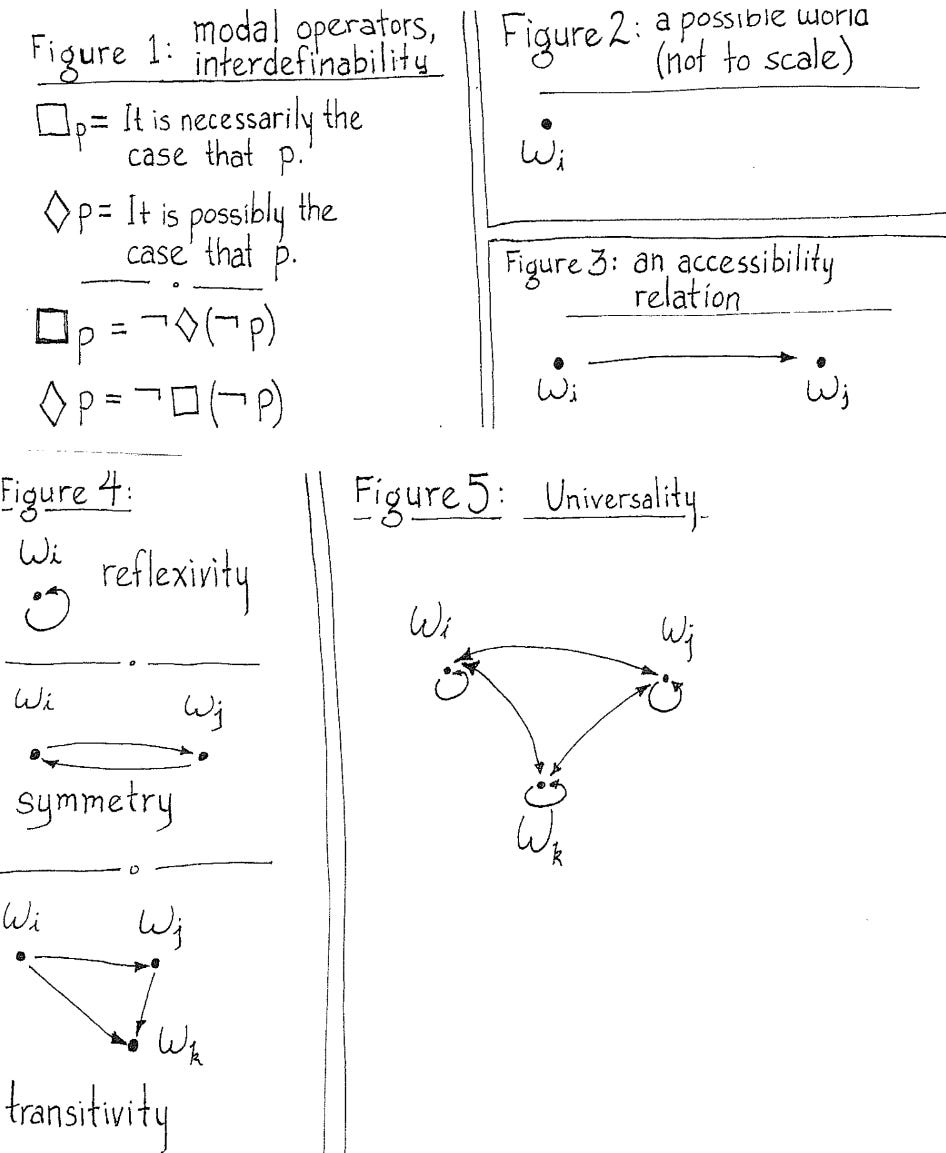 Figure 1: modal operators,
interdefinability
□p = It is necessarily the
case that p.
◇p = It is possibly the
case that p.
□p = ¬◇(¬p)
◇p = ¬□(¬p)
Figure 2: a possible world
(not to scale)
wi
Figure 3: an accessibility
relation
wi wj
Figure 4:
wi
reflexivity
wi wj
symmetry
wi wj
wk
transitivity
Figure 5: Universality
wi wj
wk